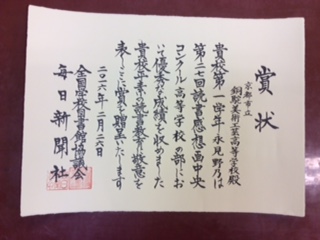 賞状
京都市立
銅駝美術工芸高等学校殿
貴校第一学年永見野乃は
第二十七回読書感想画中央
コンクール高等学校の部にお
いて優秀な成績を収めました
貴校平素の読書教育に敬意を
表しここに賞を贈呈いたします
二〇一六年二月二六日
全国学校図書館協議会
毎日新聞社